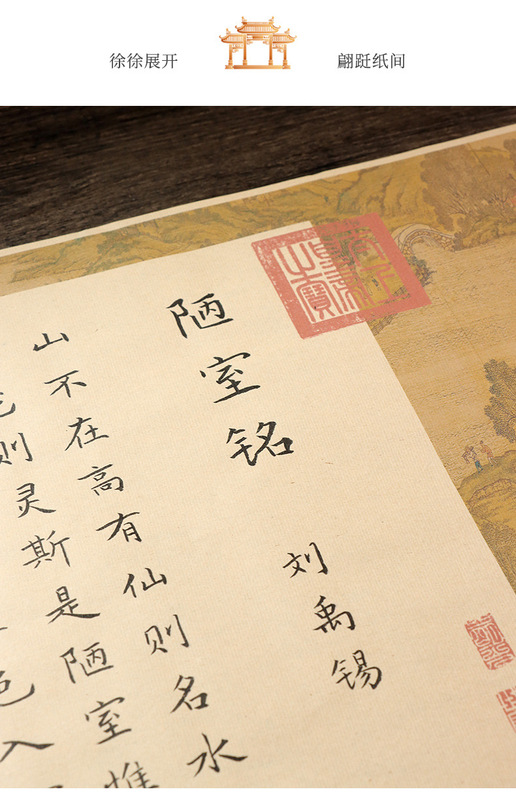 徐徐展开
翩跹纸间
陋室铭
刘禹锡
山不在高有仙则名水
则灵斯是陋室惟
色入
之寶